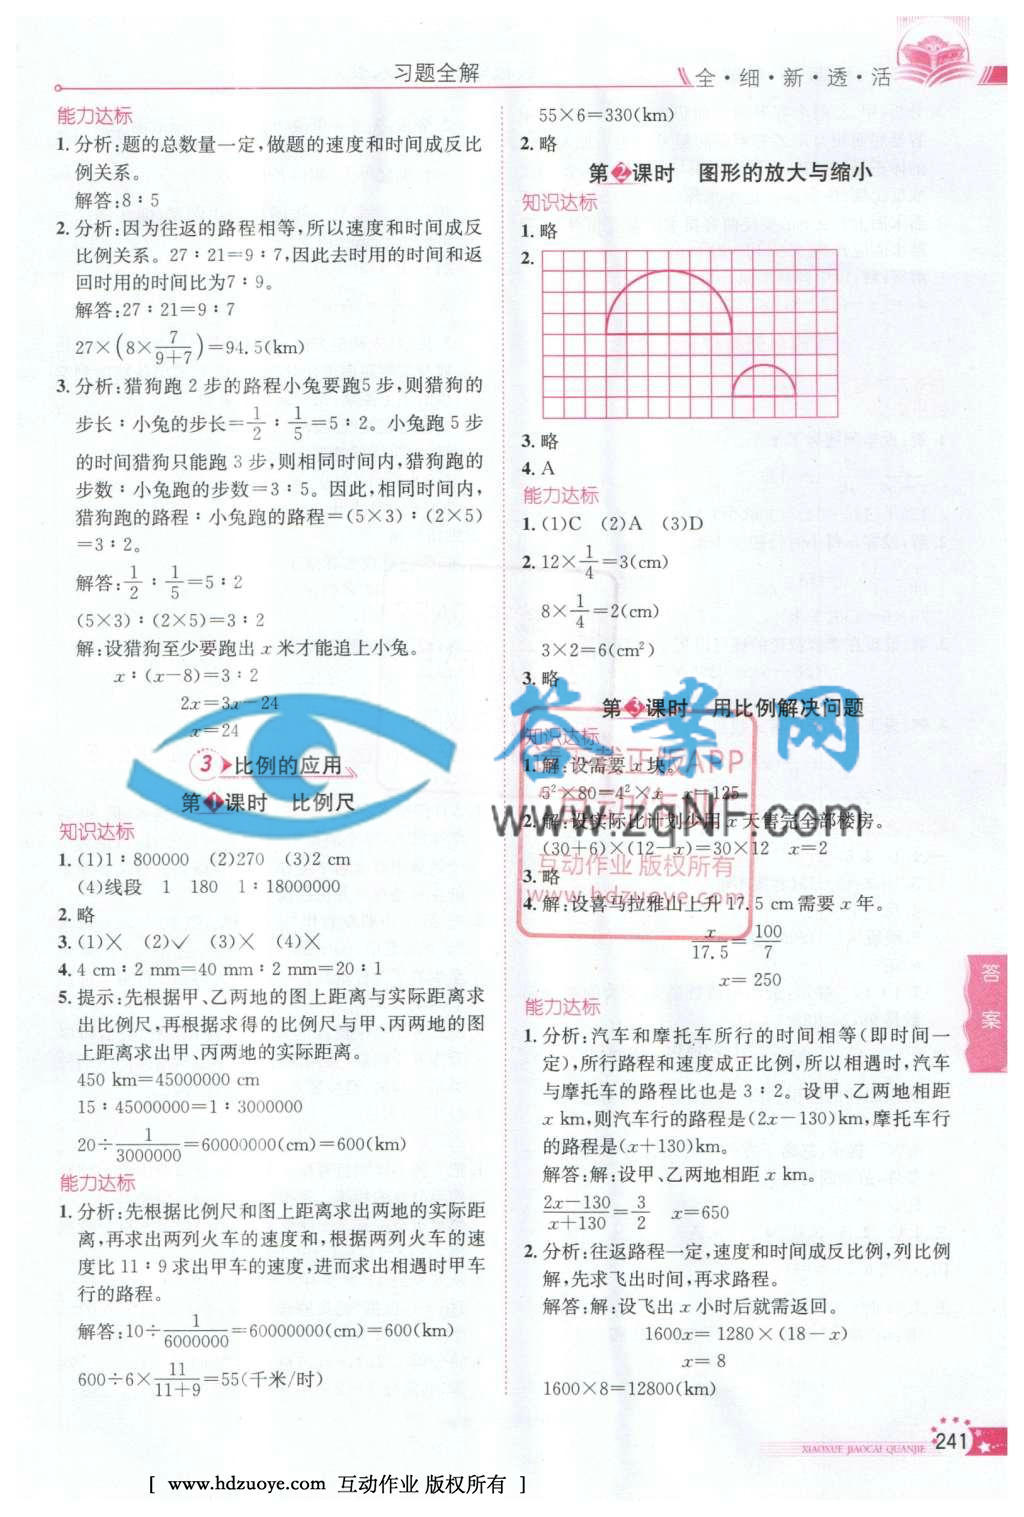 习题全解
全·细·新·透·活
能力达标
1. 分析:题的总数量一定,做题的速度和时间成反比
例关系。
解答:8∶5
2. 分析:因为往返的路程相等,所以速度和时间成反
比例关系。27∶21=9∶7,因此去时用的时间和返
回时用的时间比为7∶9。
解答:27∶21=9∶7
27×(8×7/(9+7))=94.5(km)
3. 分析:猎狗跑 2 步的路程小兔要跑5 步,则猎狗的
步长∶小兔的步长=1/2∶1/5=5∶2。小兔跑 5 步
的时间猎狗只能跑 3 步,则相同时间内,猎狗跑的
步数∶小兔跑的步数=3∶5。因此,相同时间内,
猎狗跑的路程∶小兔跑的路程=(5×3)∶(2×5)
=3∶2。
解答:1/2∶1/5=5∶2
(5×3)∶(2×5)=3∶2
解:设猎狗至少要跑出 x 米才能追上小兔。
x∶(x-8)=3∶2
2x=3x-24
x=24
3 比例的应用
第1课时 比例尺
知识达标
1. (1)1∶800000 (2)270 (3)2 cm
(4)线段 1 180 1∶18000000
2. 略
3. (1)× (2)✓ (3)× (4)×
4. 4 cm∶2 mm=40 mm∶2 mm=20∶1
5. 提示:先根据甲、乙两地的图上距离与实际距离求
出比例尺,再根据求得的比例尺与甲、丙两地的图
上距离求出甲、丙两地的实际距离。
450 km=45000000 cm
15∶45000000=1∶3000000
20÷1/3000000=60000000(cm)=600(km)
能力达标
1. 分析:先根据比例尺和图上距离求出两地的实际距
离,再求出两列火车的速度和,根据两列火车的速
度比 11∶9 求出甲车的速度,进而求出相遇时甲车
行的路程。
解答:10÷1/6000000=60000000(cm)=600(km)
600÷6×11/(11+9)=55(千米/时)
55×6=330(km)
2. 略
第2课时 图形的放大与缩小
知识达标
1. 略
2.
3. 略
4. A
能力达标
1. (1)C (2)A (3)D
2. 12×1/4=3(cm)
8×1/4=2(cm)
3×2=6(cm²)
3. 略
第3课时 用比例解决问题
知识达标
1. 解:设需要 x 块。
5²×80=4²×x x=125
2. 解:设实际比计划少用 x 天售完全部楼房。
(30+6)×(12-x)=30×12 x=2
3. 略
4. 解:设喜马拉雅山上升 17.5 cm需要 x 年。
x/17.5=100/7
x=250
能力达标
1. 分析:汽车和摩托车所行的时间相等(即时间一
定),所行路程和速度成正比例,所以相遇时,汽车
与摩托车的路程比也是 3∶2。设甲、乙两地相距
x km,则汽车行的路程是(2x-130)km,摩托车行
的路程是(x+130)km。
解答:解:设甲、乙两地相距 x km。
(2x-130)/(x+130)=3/2 x=650
2. 分析:往返路程一定,速度和时间成反比例,列比例
解,先求飞出时间,再求路程。
解答:解:设飞出 x 小时后就需返回。
1600x=1280×(18-x)
x=8
1600×8=12800(km)
答案
答案网
www.zqNF.com
下载正版APP
互动作业
互动作业 版权所有
www.hdzuoye.com
XIAOXUE JIAOCAI QUANJIE
241
[ www.hdzuoye.com 互动作业 版权所有 ]